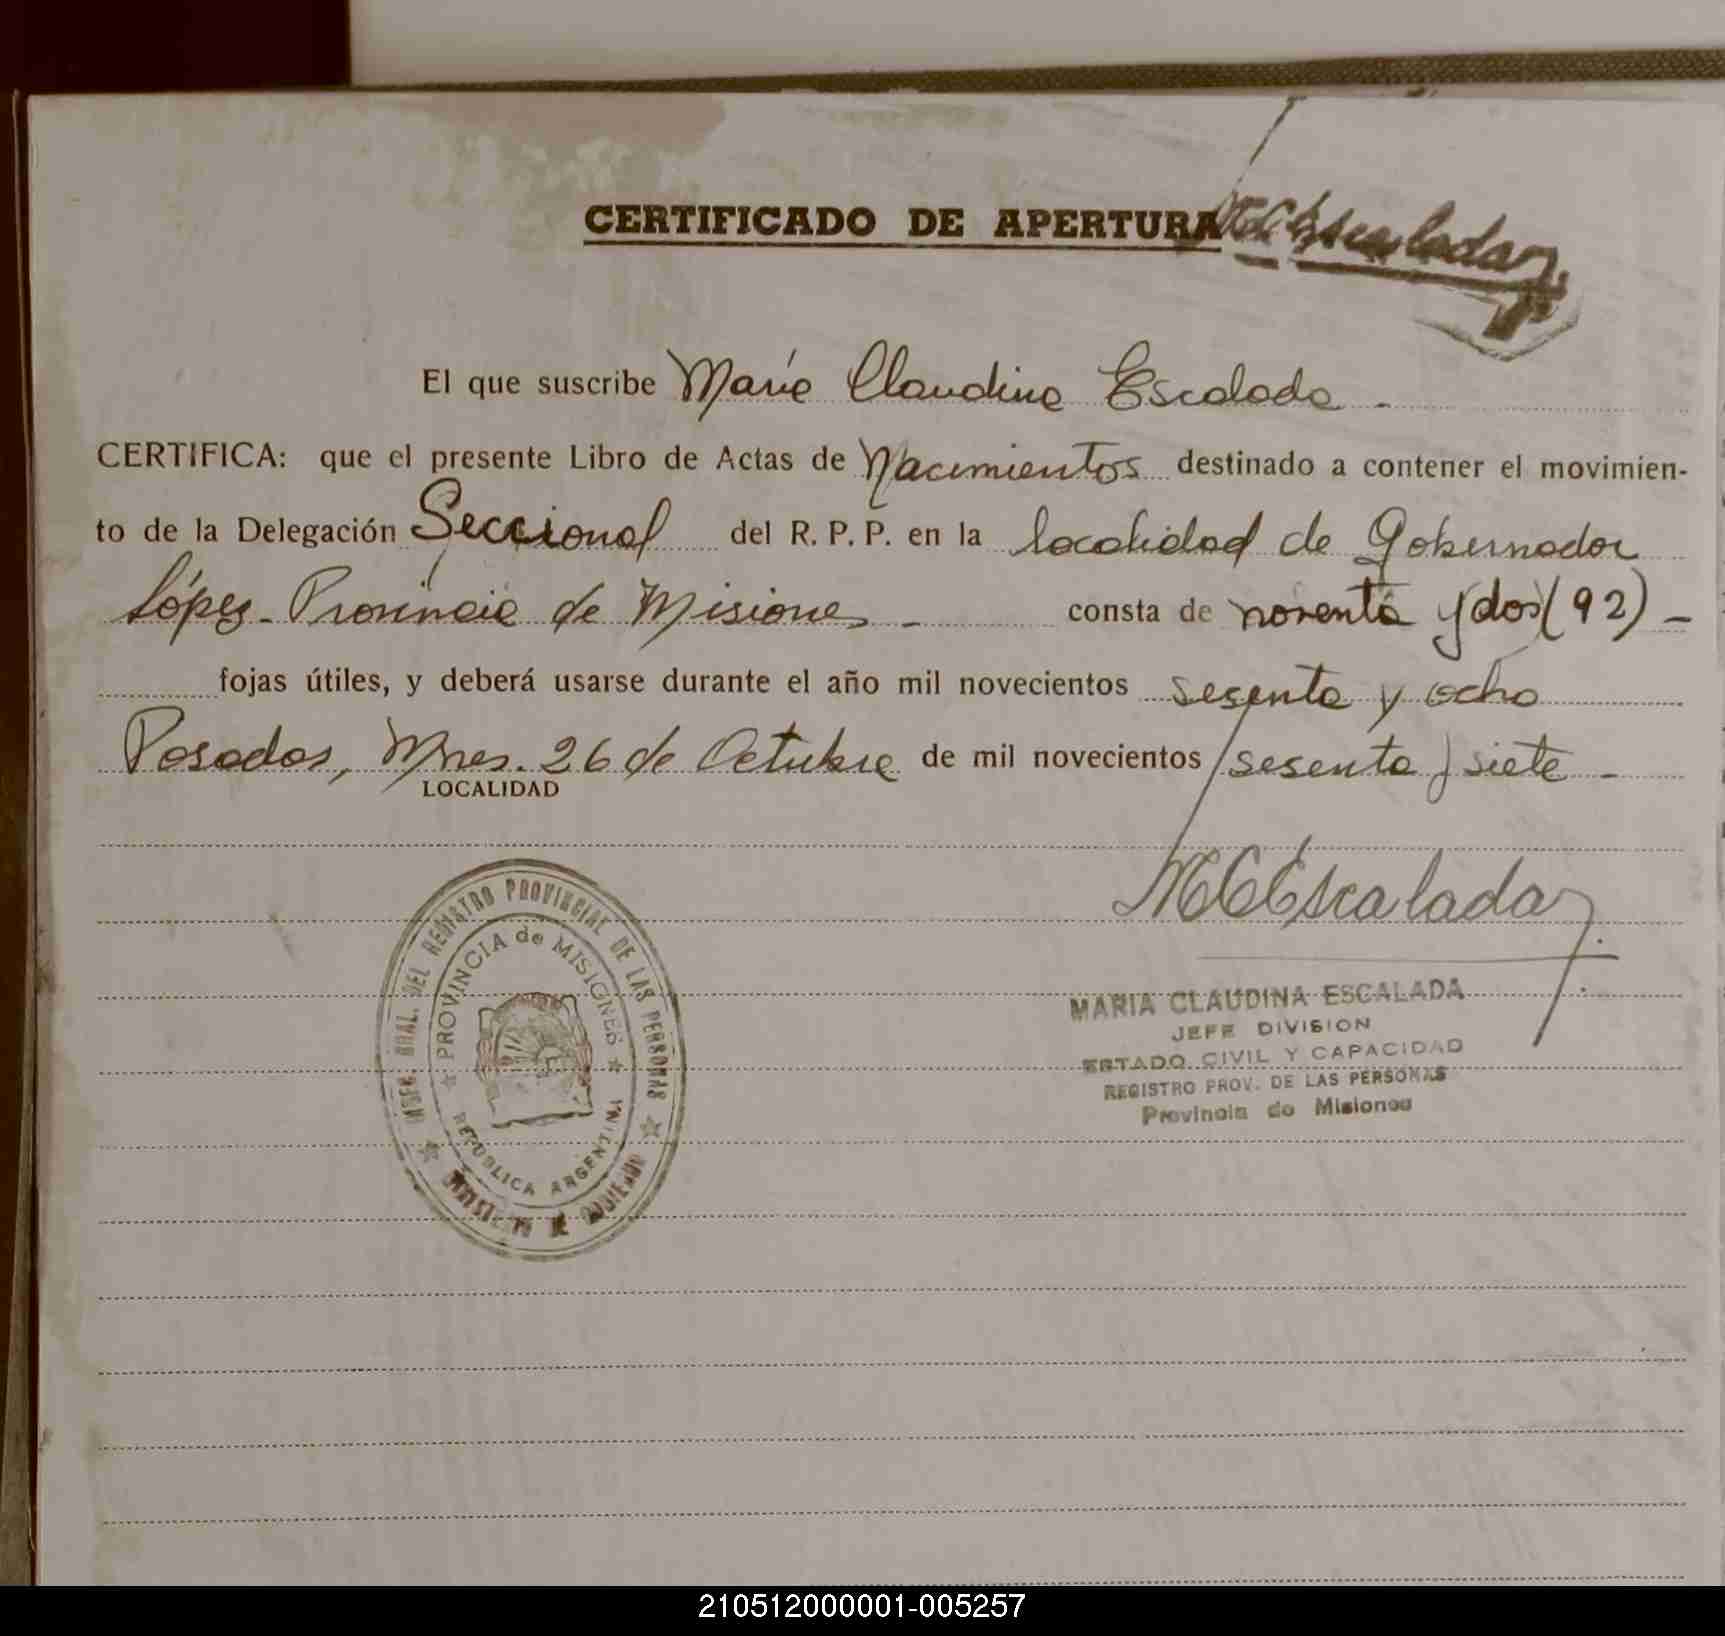 CERTIFICADO DE APERTURA
MCEscalada
El que suscribe María Claudina Escalada -
CERTIFICA: que el presente Libro de Actas de Nacimientos destinado a contener el movimien-
to de la Delegación Seccional del R. P. P. en la localidad de Gobernador
López - Provincia de Misiones - consta de noventa y dos (92) -
fojas útiles, y deberá usarse durante el año mil novecientos sesenta y ocho
Posadas, Mnes. 26 de Octubre de mil novecientos sesenta y siete -
LOCALIDAD
MCEscalada
MARIA CLAUDINA ESCALADA
JEFE DIVISION
ESTADO CIVIL Y CAPACIDAD
REGISTRO PROV. DE LAS PERSONAS
Provincia de Misiones
GRAL. DEL REGISTRO PROVINCIAL DE LAS PERSONAS
PROVINCIA de MISIONES
REPUBLICA ARGENTINA
210512000001-005257